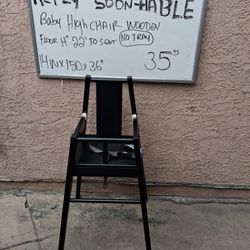 SOON-HABLE
Baby HighCHAIR WOODEN
FLOOR 4" 22" TO SEAT (NO TRAY)
14W x 15D x 36" 35